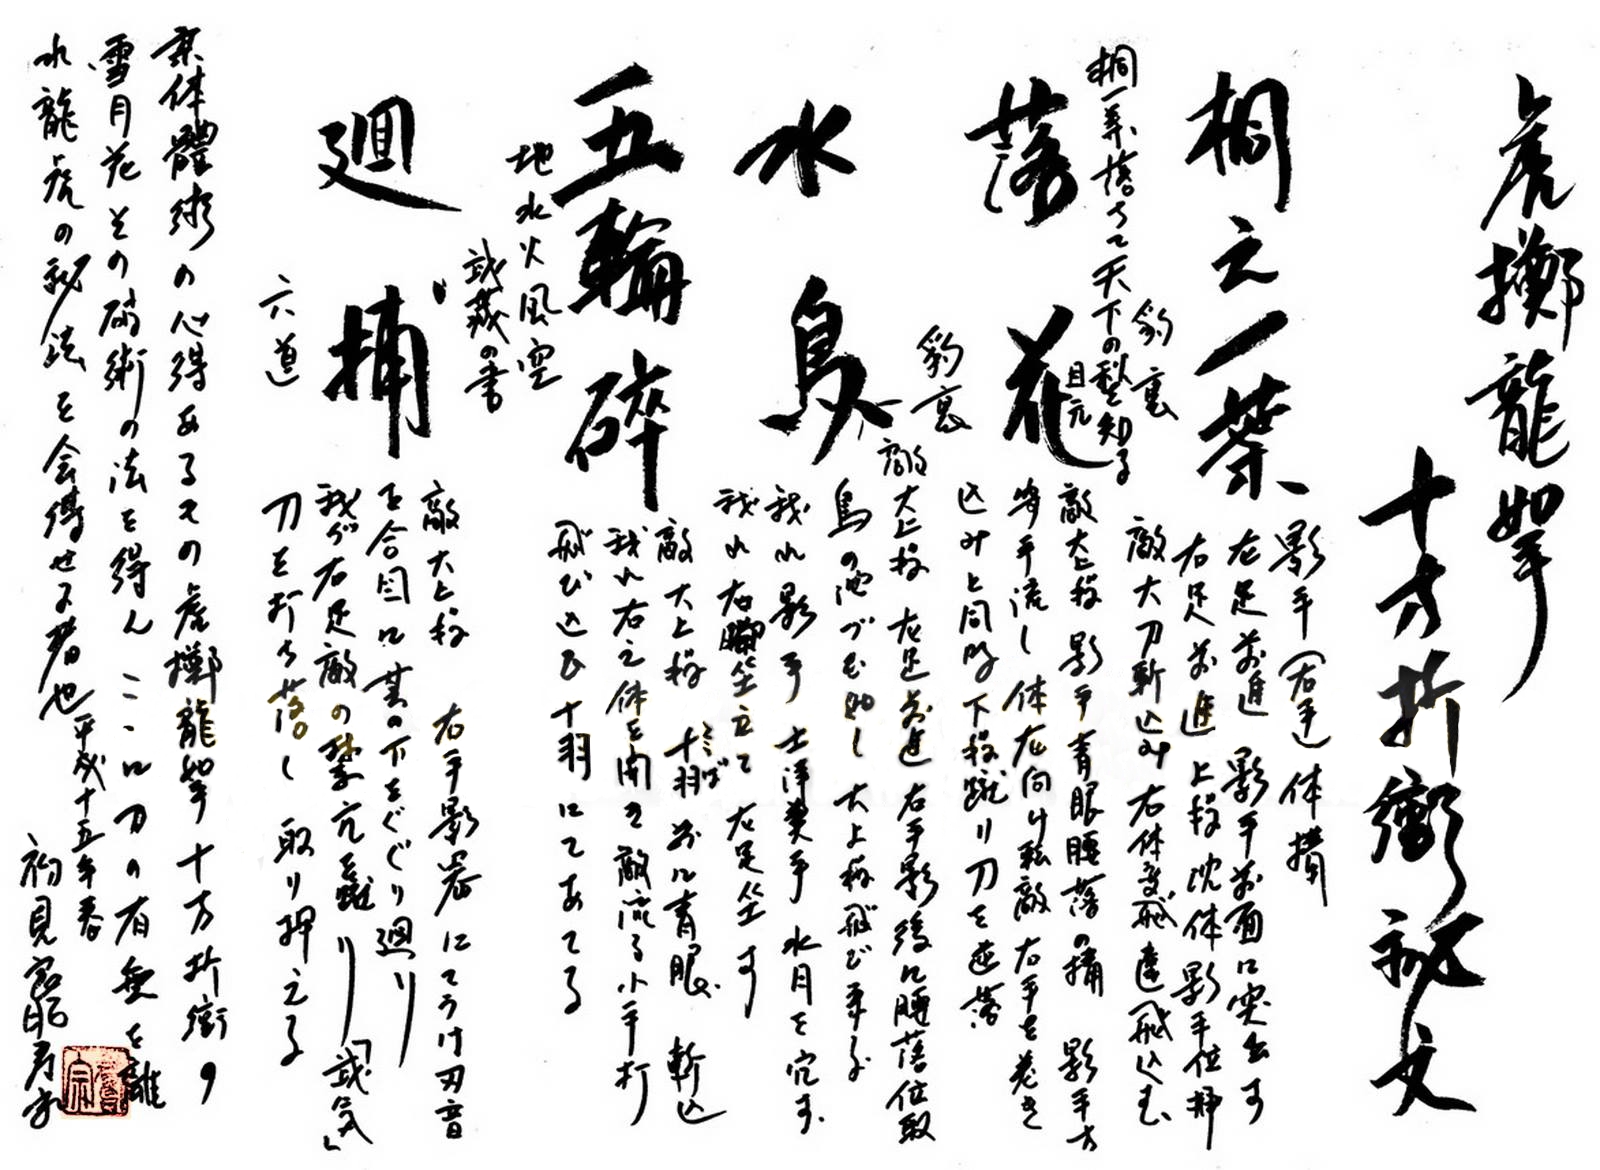 虎擲龍拏
十方折衝秘文
桐之一葉
影手（右手）体構
左足前進 影手前面に突出す
右足前進 上段 沈体 影手位
敵大刀斬込み右体変飛違飛込む
桐一葉落ちて天下の秋を知る
豹裏
目元
落花
敵大上段 影手青眼腰落の構 影手方
手流し体左向け転敵右手を巻き
込み と同時 下段蹴り刀を逆落
豹裏
水鳥
敵大上段 左足前進 右手影後に腰落位取
鳥の池づを如し大上段飛び来る
我れ影手 水月を穴す
我れ右脚坐立て 左足坐す
五輪砕
地水火風空
武蔵の書
敵大上段 十羽 前に青眼 斬込
我れ右え体を開き敵流る小手打
飛び込む十羽にてあてる
廻捕
六道
敵大上段 右手影 にてうけ刃音
を合図に其の下をくぐり廻り
我が右足敵の 元を蹴り「武気」
刀を打ち落し取り押える
体體術の心得あるその虎擲龍拏十方折衝の
雪月花その 術の法を得ん ここに刀の有無を離
水龍虎の秘法を会得せる者也
平成十五年春
初見宗